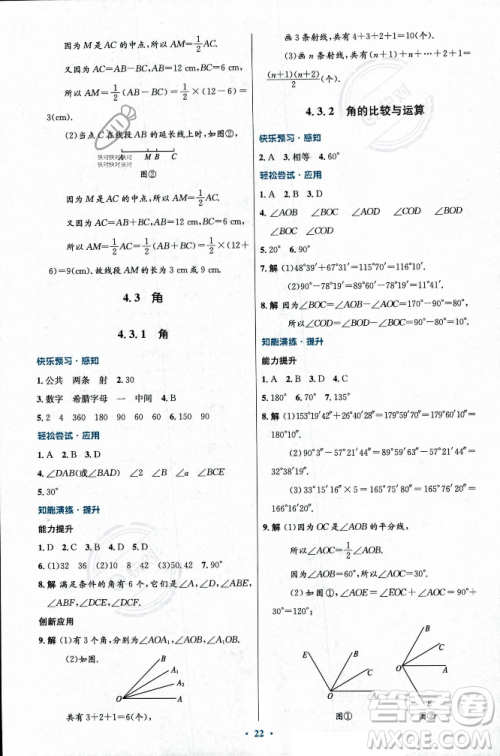 因为 M 是 AC 的中点,所以 AM=1/2 AC.
又因为 AC=AB-BC,AB=12 cm,BC=6 cm,
所以 AM=1/2 AC=1/2(AB-BC)=1/2×(12-6)
=3(cm).
(2)当点 C 在线段 AB 的延长线上时,如图②,
A M B C
图②
因为 M 是 AC 的中点,所以 AM=1/2 AC.
又因为 AC=AB+BC,AB=12 cm,BC=6 cm,
所以 AM=1/2 AC=1/2(AB+BC)=1/2×(12+
6)=9(cm).故线段 AM 的长为 3 cm 或 9 cm.
4.3 角
4.3.1 角
快乐预习·感知
1.公共 两条 射 2.30
3.数字 希腊字母 一 中间 4.B
5.2 4 360 180 60 60 6.150°
轻松尝试·应用
1.B 2.B 3.D
4.∠DAB(或∠BAD) ∠2 ∠α ∠ABC
5.30°
知能演练·提升
能力提升
1.D 2.C 3.B 4.C
6.(1)15 10 (2)3 2 (3)18 7.150,42 8.D
8.解 满足条件的角有 6 个,∠ADV,∠BDE,∠BDF,
∠ABF,∠DBE,∠DBF.
创新应用
9.解 (1)有 3 个角,分别为∠AOA₁,∠AOB,∠A₁OB.
(2)如图.
B
A₁
A₂
O A
共有 3+2+1=6(个).
画 3 条射线,共有 4+3+2+1=10(个).
(3)画 n 条射线,共有(n+1)+n+…+3+2+1=
(n+1)(n+2)/2(个).
4.3.2 角的比较与运算
快乐预习·感知
2.A 3.相等 4.60°
轻松尝试·应用
1.A 2.B 3.D
4.∠AOB ∠BOC ∠AOC ∠BOD
5.20° 6.90°
7.解 (1)48°39′+67°31′=115°70′=116°10′.
(2)90°-78°19′=89°60′-78°19′=11°41′.
8.解 因为∠BOC=∠AOC-∠AOB=80°-50°=
30°,所以∠BOD=∠BOC+∠COD=30°+80°=
110°.
知能演练·提升
能力提升
1.A 2.C 3.B 4.D
5.180° 6.70° 7.135°
8.解 (1)153°19′42″+26°40′28″=179°59′70″=
180°10″.
(2)90°3″-57°21′44″=89°59′63″-57°21′44″=
32°38′19″.
(3)33°15′16″×5=165°75′80″=166°16′20″.
9.解 (1)因为 OC 是∠AOB 的平分线,
所以∠AOC=1/2∠AOB.
因为∠AOB=60°,所以∠AOC=30°.
(2)如图①,∠AOE=∠EOB+∠AOB=90°+60°
=150°;如图②,∠AOE=∠EOB-∠AOB=90°-
60°=30°.
E B
C
O A
图①
B
C
O A
E
图②
22